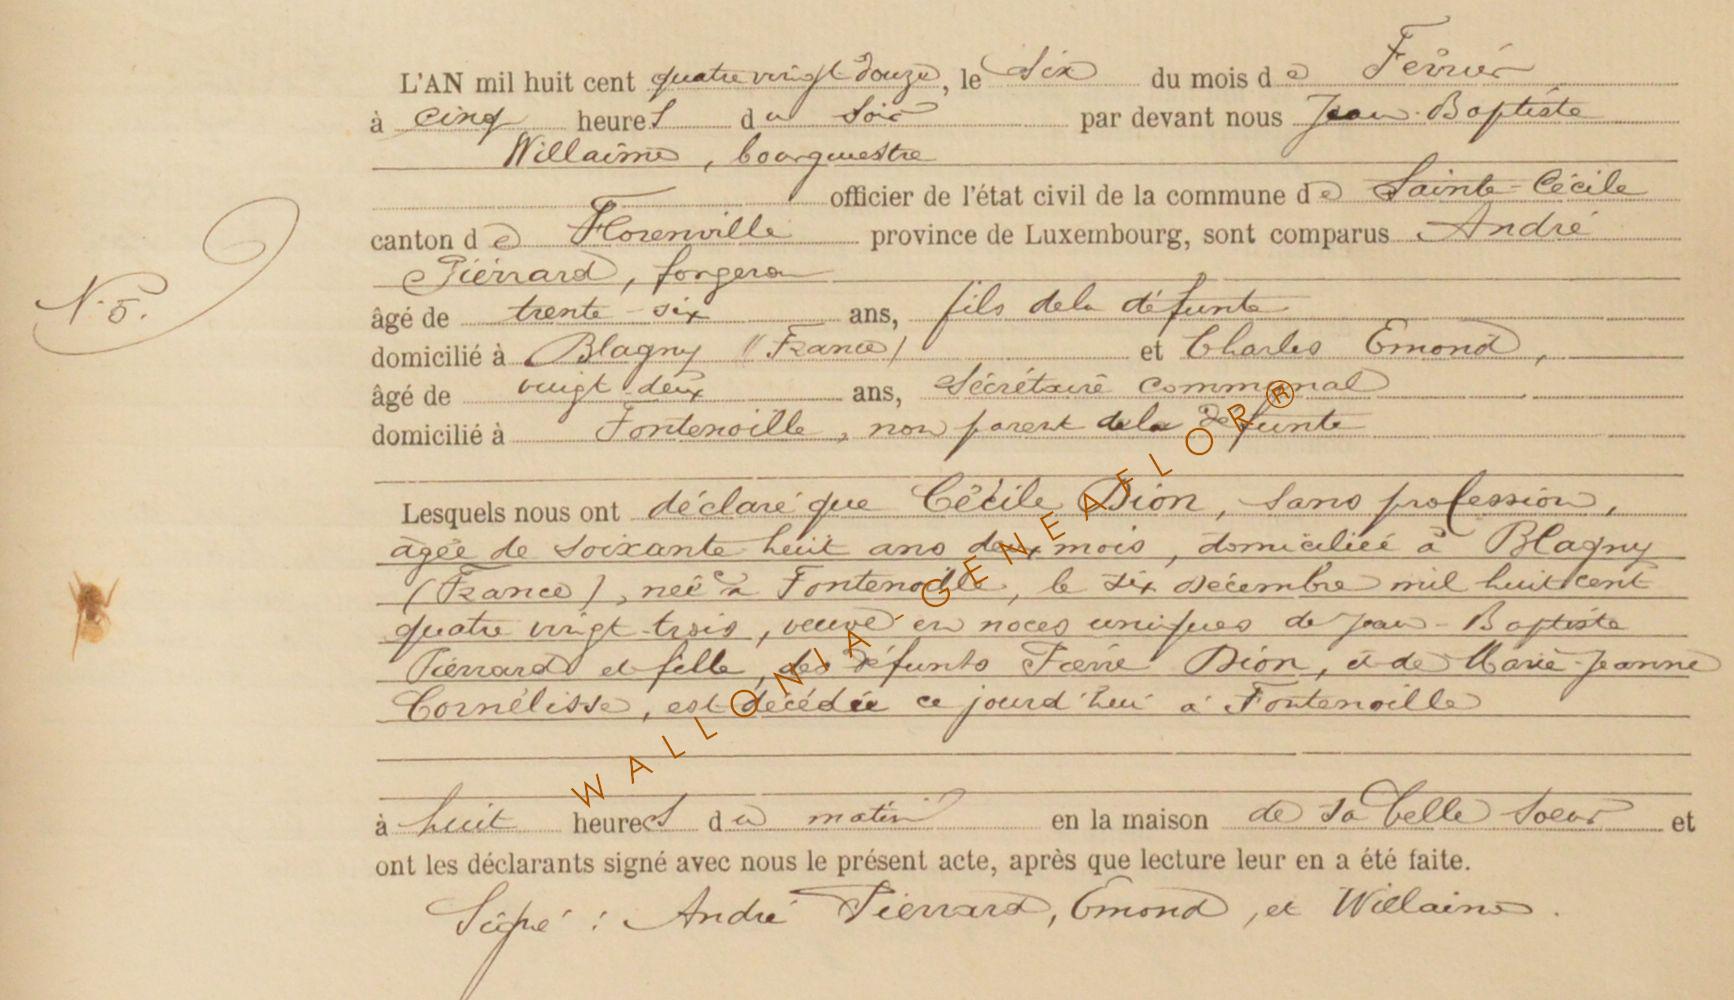 L'AN mil huit cent quatre vingt douze, le Six du mois de Février
à cinq heures du Soir par devant nous Jean-Baptiste
Willaime, bourgmestre
officier de l'état civil de la commune de Sainte-Cécile
canton de Florenville province de Luxembourg, sont comparus André
Piérrard, forgeron
N. 5.
âgé de trente-six ans, fils de la défunte
domicilié à Blagny (France) et Charles Emond,
âgé de vingt deux ans, Sécrétaire communal
domicilié à Fontenoille, non parent de la défunte
Lesquels nous ont déclaré que Cécile Dion, sans profession,
âgée de soixante huit ans deux mois, domiciliée à Blagny
(France), née à Fontenoille, le six décembre mil huit cent
quatre vingt-trois, veuve en noces uniques de Jean-Baptiste
Piérrard et fille des défunts Pierre Dion, et de Marie-Jeanne
Cornélisse, est décédée ce jourd'hui à Fontenoille
à huit heures du matin en la maison de sa belle soeur et
ont les déclarants signé avec nous le présent acte, après que lecture leur en a été faite.
Signé : André Piérrard, Emond, et Willaime.
WALLONIA-GENEAFLOR®